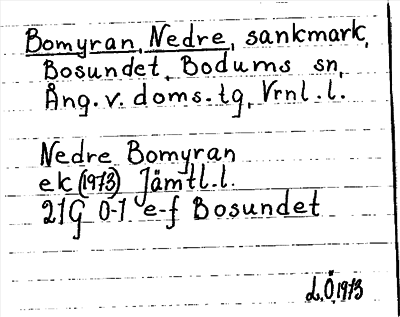 Bomyran, Nedre, sankmark,
Bosundet, Bodums sn,
Ång. v. doms. tg, Vrnl. l.
Nedre Bomyran
ek (1973) Jämtl. l.
21G 0-1 e-f Bosundet
L.Ö. 1973